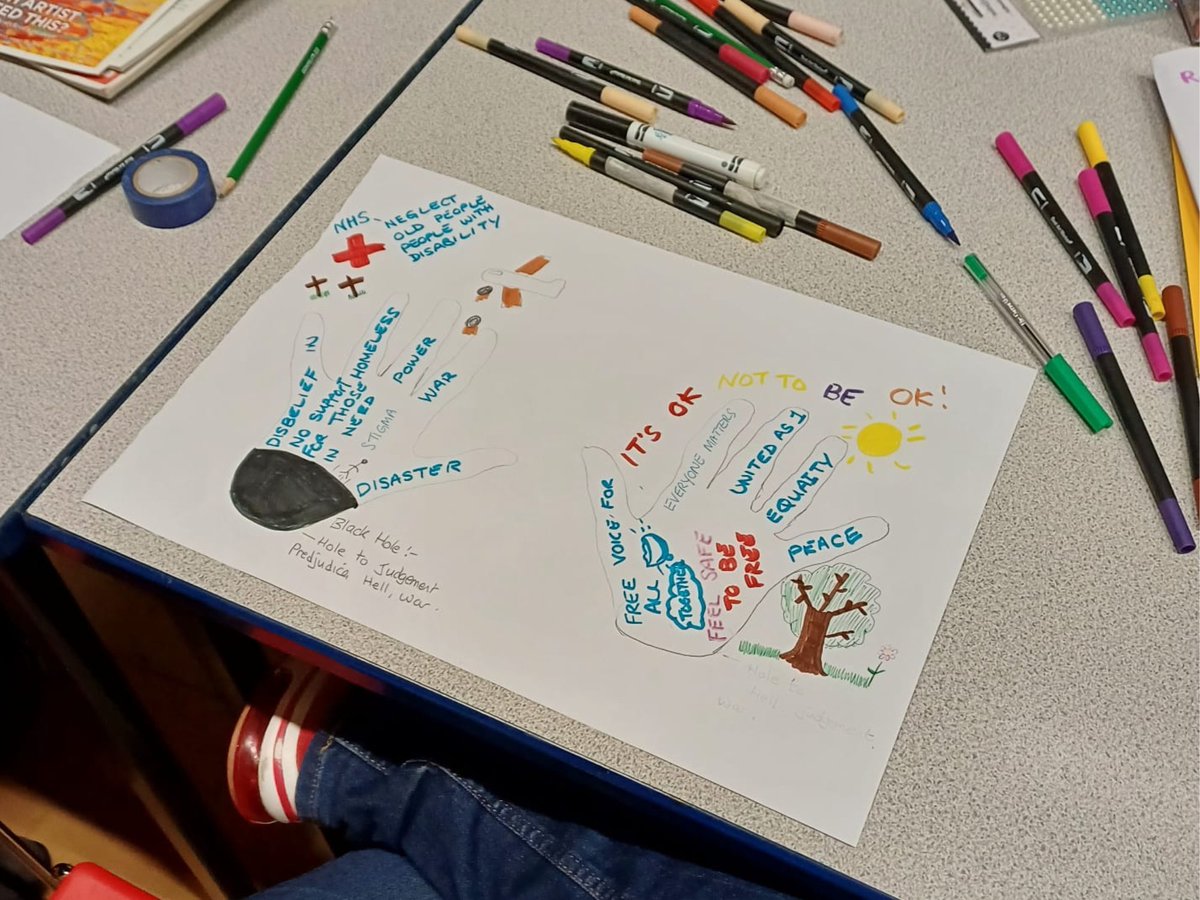 ARTIST
THIS?
NHS - NEGLECT
OLD PEOPLE
PEOPLE WITH
DISABILITY
DISBELIEF IN
NO SUPPORT
FOR THOSE HOMELESS
IN NEED
STIGMA
POWER
WAR
DISASTER
Black Hole :-
- Hole to Judgement
Predjudica, Hell, War.
IT'S OK NOT TO BE OK!
EVERYONE MATTERS
UNITED AS 1
EQUALITY
PEACE
FREE VOICE FOR
ALL
TOGETHER
FEEL SAFE
TO BE
FREE
- Hole to
Hell Judgement
War.
R